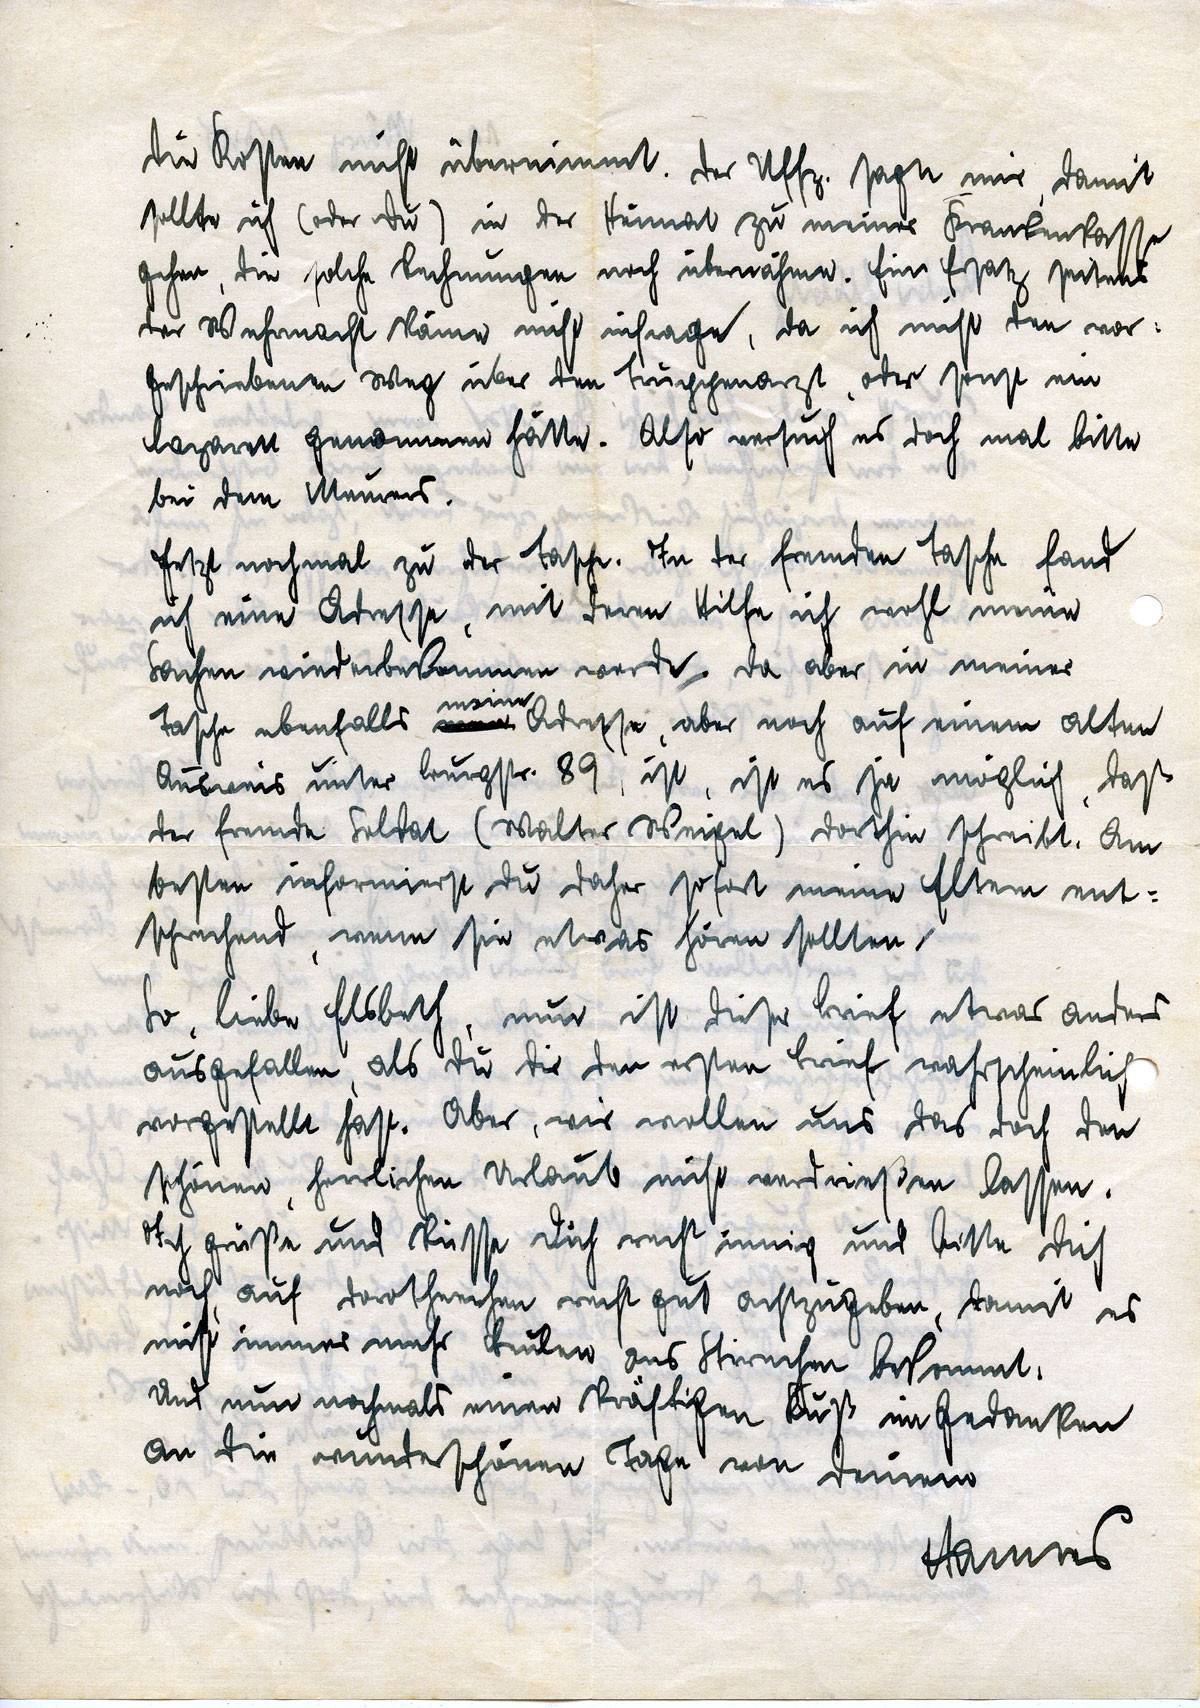 die Kosten nicht übernimmt. Der Uffz. sagte mir, damit
sollte ich (oder Du) in der Heimat zu meiner Krankenkasse
gehen, die solche Rechnungen noch übernähme. Ein Ersatz seitens
der Wehrmacht käme nicht infrage, da ich nicht den vor=
geschriebenen Weg über den Truppenarzt, oder sonst ein
Lazarett genommen hätte. Also versuch es doch mal bitte
bei dem Meurers.
Jetzt nochmal zu der Tasche. In der fremden Tasche fand
ich eine Adresse, mit deren Hilfe ich wohl meine
Sachen wiederbekommen werde. Da aber in meiner
Tasche ebenfalls meine Adresse, aber noch auf einem alten
Ausweis unter Burgstr. 89, ist, ist es ja möglich, daß
der fremde Soldat (Walter Weigel) dorthin schreibt. Am
besten informierst Du daher sofort meine Eltern ent=
sprechend, wenn sie etwas hören sollten!
So, liebe Elsbeth, nun ist dieser Brief etwas anders
ausgefallen, als Du Dir den ersten Brief wahrscheinlich
vorgestellt hast. Aber, wir wollen uns das doch den
schönen, herrlichen Urlaub nicht verdrießen lassen.
Ich grüße und küsse Dich recht innig und bitte Dich
noch, auf Dorotheechen recht gut achtzugeben, damit es
nicht immer mehr Beulen ans Stirnchen bekommt.
Und nun nochmals einen kräftigen Kuß im Gedanken
an die wunderschönen Tage von Deinem
Hannes